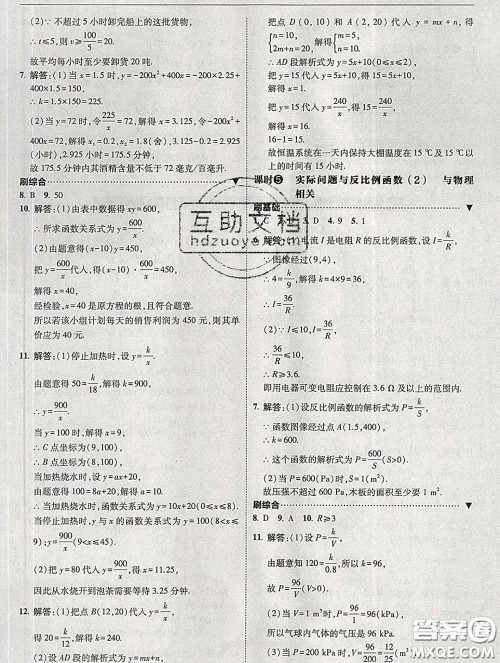 (2)∵不超过 5 小时卸完船上的这批货物,
∴t≤5,则 v≥100/5=20.
故平均每小时至少要卸货 20 吨.
7. 解答:(1)当 x=1.5 时,y=-200x²+400x=-200×2.25+
400×1.5=150,
∴k=1.5×150=225.
(2)当 y=72 时,令225/x=72,解得 x=3.125,令-200x²+
400x=72,解得 x₁=0.2,x₂=1.8(舍),3.125-0.2=
2.925(小时),2.925×60=175.5(分钟),
故 175.5 分钟内其酒精含量不低于 72 毫克/百毫升.
刷综合
8. B 9. 50
10. 解答:(1)由表中数据得 xy=600,
∴所求函数关系式为 y=600/x.
(2)由题意得(x-10)y=450,
把 y=600/x代入得(x-10)·600/x=450,
解得 x=40.
经检验,x=40 是原方程的根,且符合题意.
所以若该小组计划每天的销售利润为 450 元,则其单
价应为 40 元.
11. 解答:(1)停止加热时,设 y=k/x.
由题意得 50=k/18,解得 k=900.
∴y=900/x.
当 y=100 时,解得 x=9.
∴C 点坐标为(9,100),
∴B 点坐标为(8,100),
当加热烧水时,设 y=ax+20,
由题意得 100=8a+20,解得 a=10.
∴当加热烧水时,函数关系式为 y=10x+20(0≤x≤8);
当停止加热时,y 与 x 的函数关系式为 y=100(8<x≤9),
y=900/x(9<x≤45).
(2)把 y=80 代入 y=900/x,得 x=11.25.
因此从水烧开到泡茶需要等待 3.25 分钟.
12. 解答:(1)把点 B(12,20)代入 y=k/x,
得 20=k/12,解得 k=240.
(2)设 AD 段的解析式为 y=mx+n.
把点 D(0,10)和 A(2,20)代入 y=mx+n,得
{n=10,
2m+n=20, 解得{m=5,
n=10.
∴AD 段解析式为 y=5x+10(0≤x≤2),
把 y=15 代入 y=5x+10,得 15=5x+10,
解得 x=1.
把 y=15 代入 y=240/x,得 15=240/x,
解得 x=16.
16-1=15.
故恒温系统在一天内保持大棚温度在 15 ℃及 15 ℃以
上的时间有 15 小时.
课时❺ 实际问题与反比例函数(2) 与物理
相关
刷基础
3. D 4. 9 5. 1
6. 解答:(1)电流 I 是电阻 R 的反比例函数,设 I=k/R,
∵图像经过(9,4),
∴4=k/9,解得 k=4×9=36,
∴I=36/R.
(2)∵I≤10,I=36/R,
∴36/R≤10,
∴R≥3.6.
即用电器可变电阻应控制在 3.6 Ω 及以上的范围内.
7. 解答:(1)设反比例函数的解析式为 P=k/S,
∵函数图像经过点 A(1.5,400),
∴k=600.
∴这个函数的解析式为 P=600/S(S>0).
(2)当 P≤600 时,600/S≤600,解得 S≥1,
故压强不超过 600 Pa,木板的面积至少要 1 m².
刷综合
8. D 9. A 10. R≥3
11. 解答:(1)设 P=k/V,
由题意知 120=k/0.8,所以 k=96,
故 P=96/V(V>0).
(2)当 V=1 m³ 时,P=96/1=96(kPa),
所以气球内气体的气压是 96 kPa.
(3)当 P=200 kPa 时,V=96/200
互助文档
hdzuoye.com
答案圈
MXQE.COM